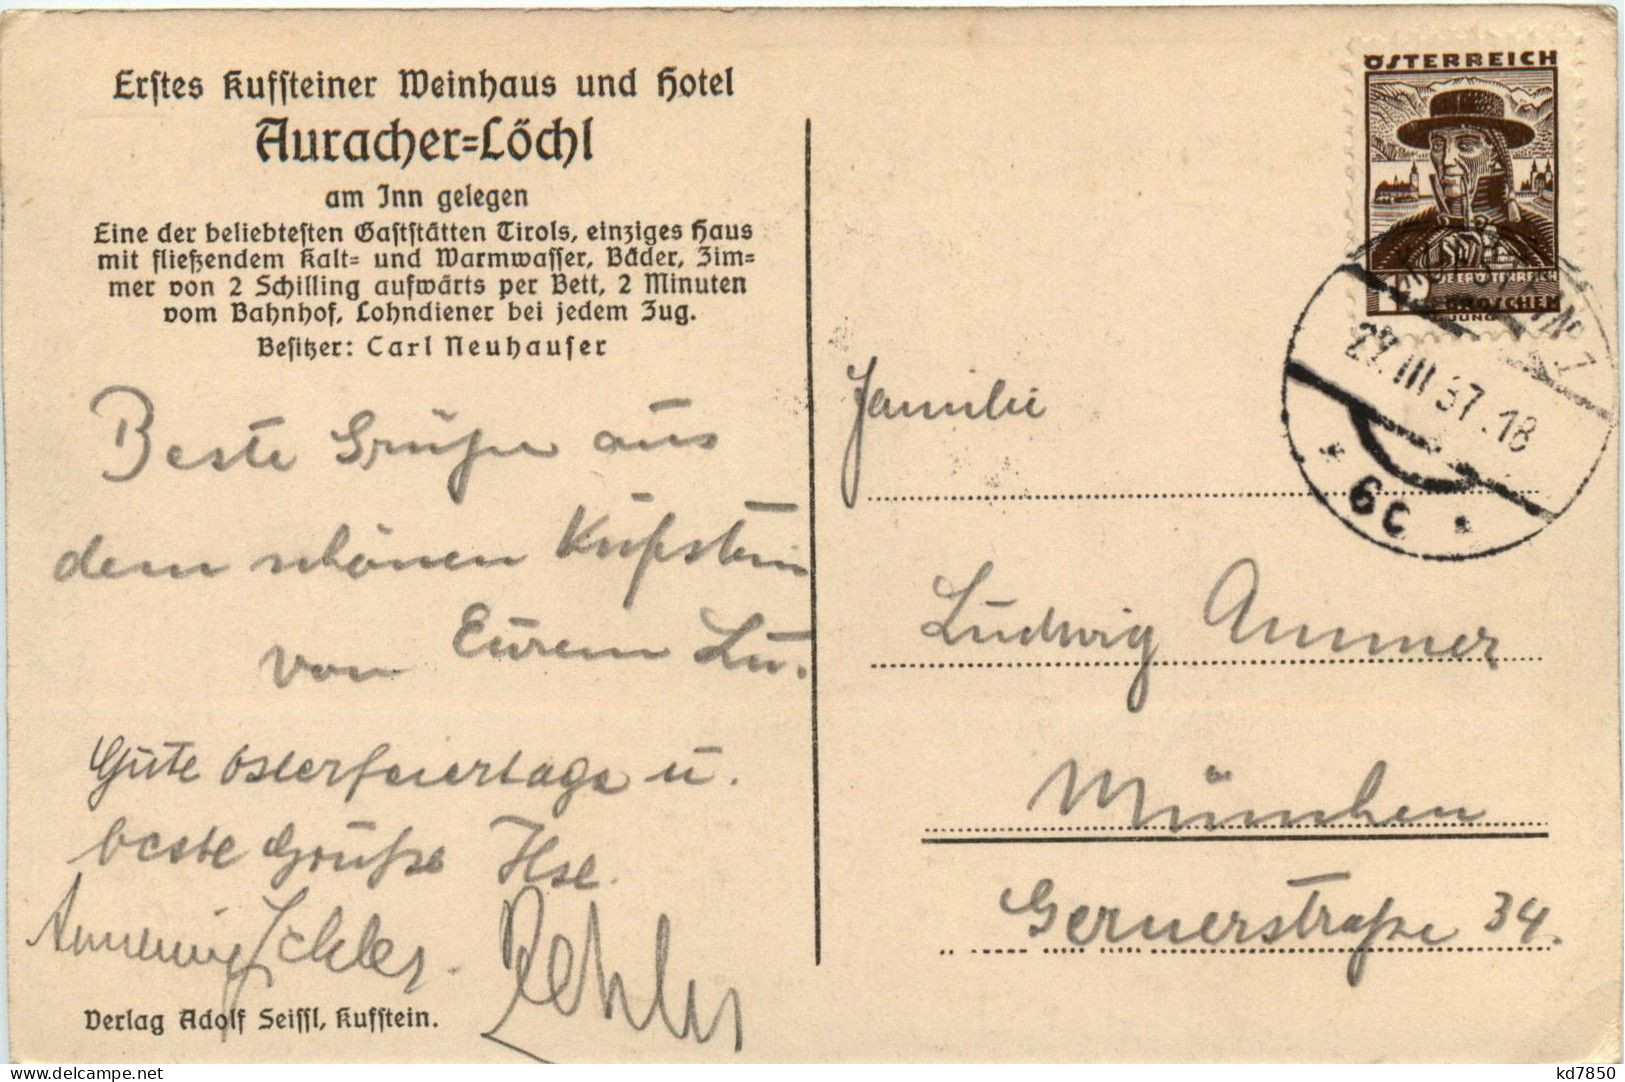 Erstes Kufsteiner Weinhaus und Hotel
Auracher=Löchl
am Inn gelegen
Eine der beliebtesten Gaststätten Tirols, einziges Haus
mit fließendem Kalt= und Warmwasser, Bäder, Zim=
mer von 2 Schilling aufwärts per Bett, 2 Minuten
vom Bahnhof, Lohndiener bei jedem Zug.
Besitzer: Carl Neuhauser
Beste Grüße aus
dem schönen Kufstein
von Eurem Lu.
Gute Osterfeiertage u.
beste Grüße Ilse.
Verlag Adolf Seissl, Kufstein.
ÖSTERREICH
OBERÖSTERREICH
GROSCHEN
JUNG
27.III.37.18
* 6c *
Familie
Ludwig Ammer
München
Gernerstraße 34.
kd7850